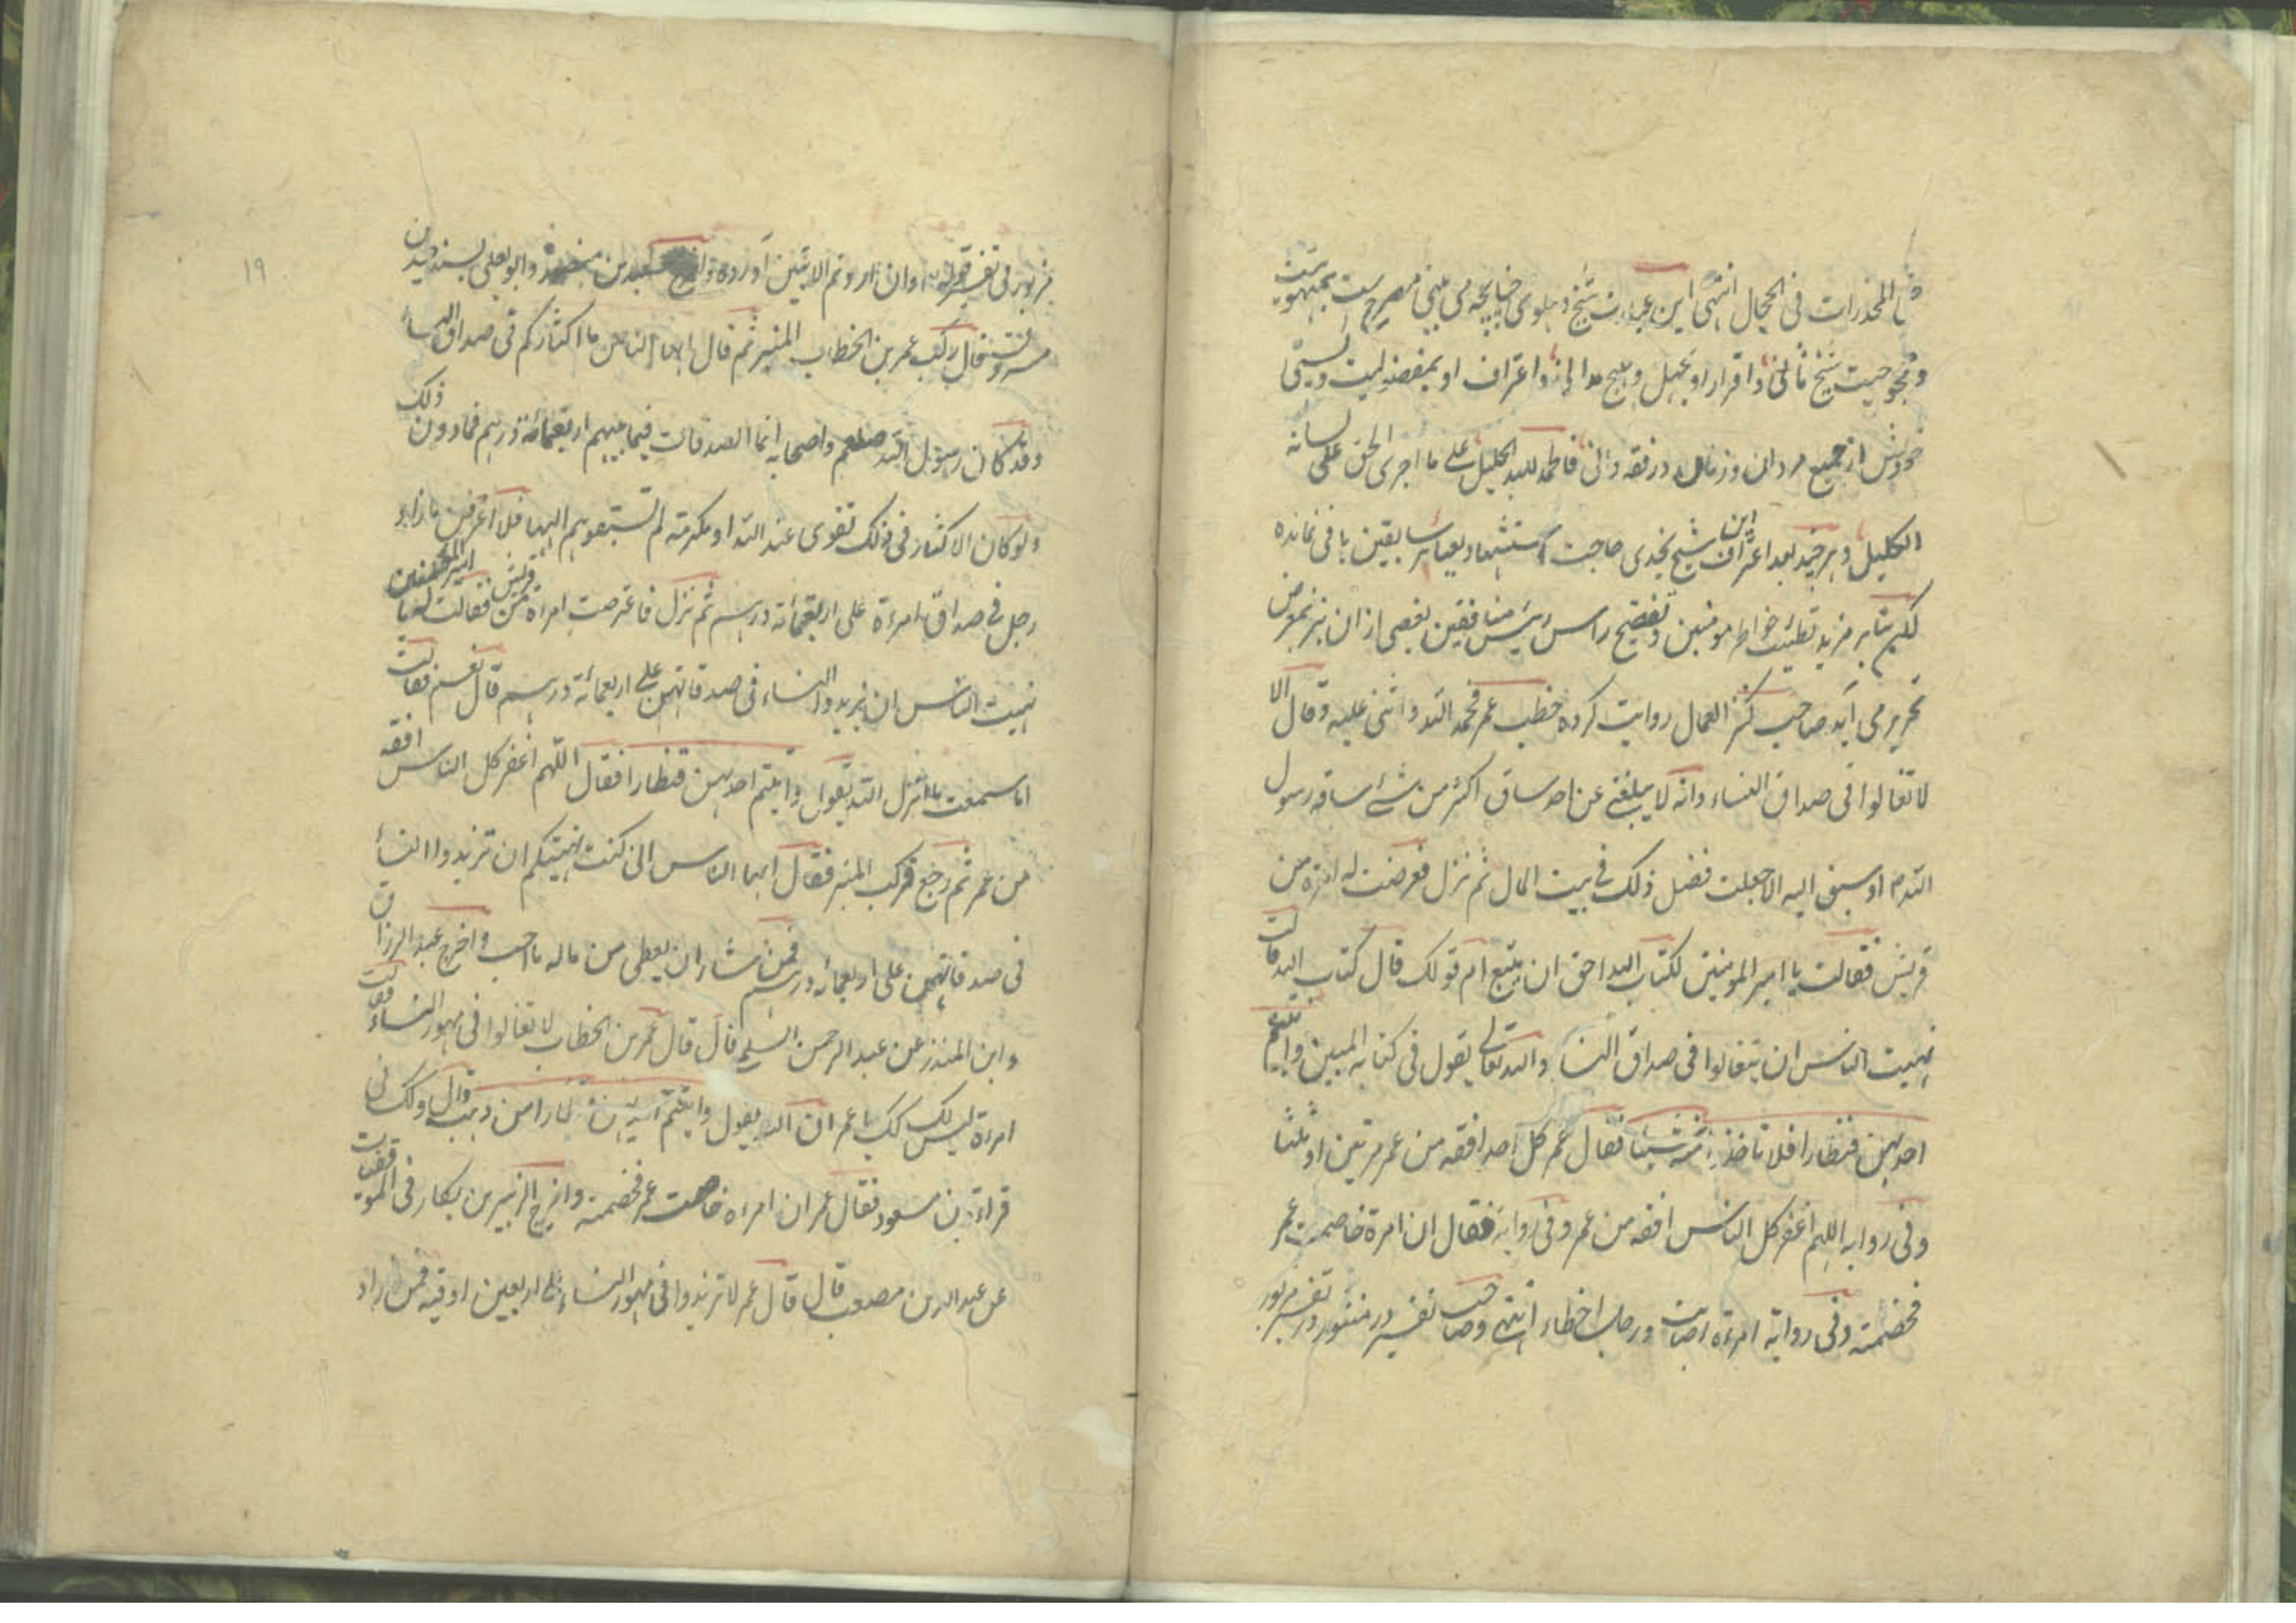 المخدرات فی الحجال انتهی این عبارت شیخ دهلوی چنانچه می بینی مصرح ست بمبهوتیت
و محجوجیت شیخ ثانی و اقرار او بجهل و اعتراف او بمفضولیت و پستی
خودش از جمیع مردان و زنان در فقه و دانی فالحمد لله الجلیل علی ما اجری الحق علی لسانه
الکلیل و هر چند بعد اعتراف این شیخ نجدی حاجت استشهاد بعبائر سابقین باقی نمانده
لکن بنابر مزید تطییب خواطر مومنین و تفضیح راس و رئیس منافقین بعضی ازان نیز بمعرض
تحریر می آید صاحب کنز العمال روایت کرده خطب عمر فحمد الله و اثنی علیه و قال الا
لا تغالوا فی صداق النساء و انه لا یبلغنی عن احد ساق اکثر من شئ ساقه رسول
الله م او سیق الیه الا جعلت فضل ذلک فی بیت المال ثم نزل فعرضت له امرءة من
قریش فقالت یا امیر المومنین لکتاب الله احق ان یتبع ام قولک قال کتاب الله قالت
نهیت الناس ان یتغالوا فی صداق النساء و الله تعالی یقول فی کتابه المبین و اتیتم
احدیهن قنطارا فلا تاخذوا منه شیئا فقال عمر کل احد افقه من عمر مرتین او ثلثا
و فی روایه اللهم اغفر کل الناس افقه من عمر و فی روایة فقال ان امرة خاصمت عمر
فخصمته و فی روایة امرءة اصابت و رجل اخطاء انتهی و صاحب تفسیر در منثور در تفسیر مزبور
مزبور فی تفسیر قوله و ان اردتم الایتین آورده و اخرج سعید بن منصور و ابو یعلی بسند جید عن
مسروق قال رکب عمر بن الخطاب المنبر ثم قال ایها الناس ما اکثارکم فی صداق النساء
و قد کان رسول الله صلعم و اصحابه انما الصدقات فیما بینهم اربعمائة درهم فما دون ذلک
و لو کان الاکثار فی ذلک تقوی عند الله او مکرمة لم تسبقوهم الیها فلا اعرفن ما زاد
رجل فی صداق امرءة علی اربعمائة درهم ثم نزل فاعترضت امراة من قریش فقالت له یا امیر المومنین
نهیت الناس ان یزیدوا النساء فی صدقاتهن علی اربعمائة درهم قال نعم فقالت
اما سمعت ما انزل الله یقول و آتیتم احدیهن قنطارا فقال اللهم اغفر کل الناس افقه
من عمر ثم رجع فرکب المنبر فقال ایها الناس انی کنت نهیتکم ان تزیدوا النساء
فی صدقاتهن علی اربعمائه درهم فمن شاء ان یعطی من ماله ما احب و اخرج عبد الرزاق
و ابن المنذر عن عبد الرحمن السلمی قال قال عمر بن الخطاب لا تغالوا فی مهور النساء فقالت
امرءة لیس لک ذلک یا عمر ان الله یقول و اتیتم احدیهن قنطارا من ذهب قال و کذلک فی
قراءة بن مسعود فقال عمر ان امرءه خاصمت عمر فخصمته و اخرج الزبیر بن بکار فی الموفقیات
عن عبد الله بن مصعب قال قال عمر لا تزیدوا فی مهور النساء علی اربعین اوقیه فمن زاد
۱۹